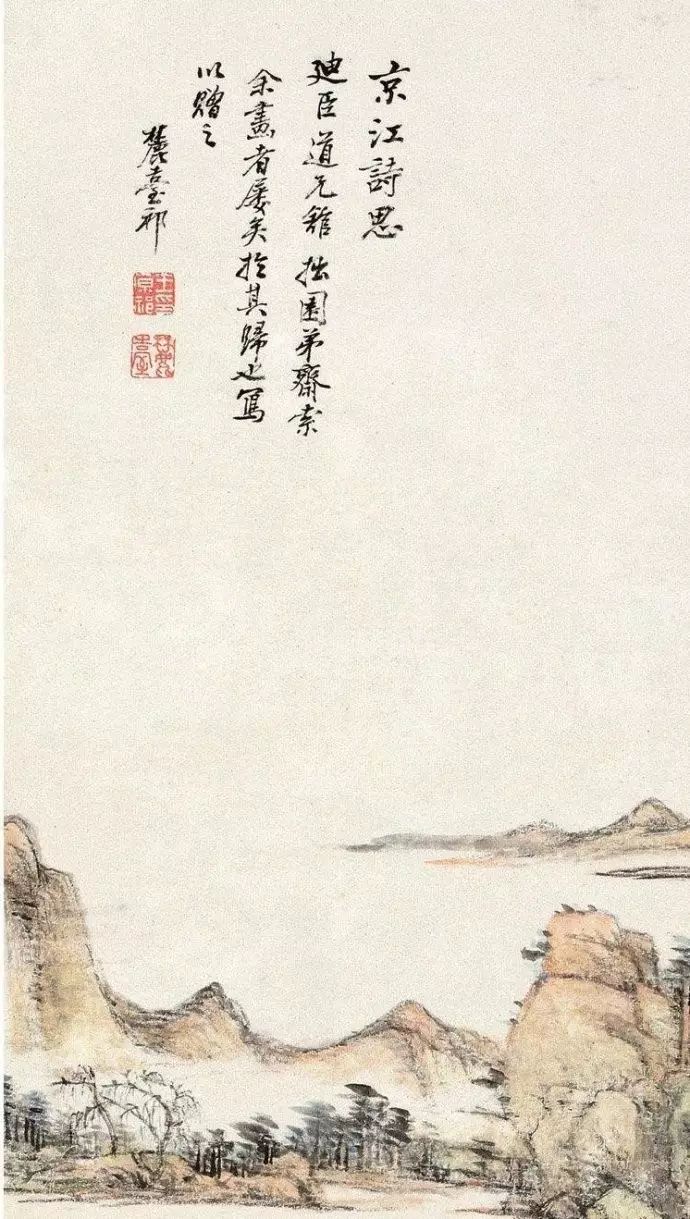 京江詩思
廸臣道兄館拙園弟齋索
余畫者屢矣於其歸也寫
以贈之
麓臺祁